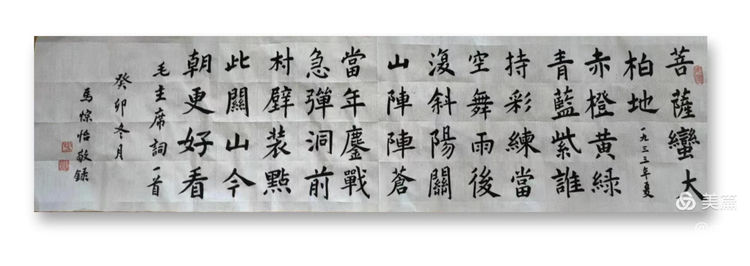 菩薩蠻 大
柏地 一九三三年夏
赤橙黃緑
青藍紫誰
持彩練當
空舞雨後
復斜陽關
山陣陣蒼
當年鏖戰
急彈洞前
村壁裝點
此關山今
朝更好看
毛主席詞一首
癸卯冬月
馬悰怡敬録
美篇